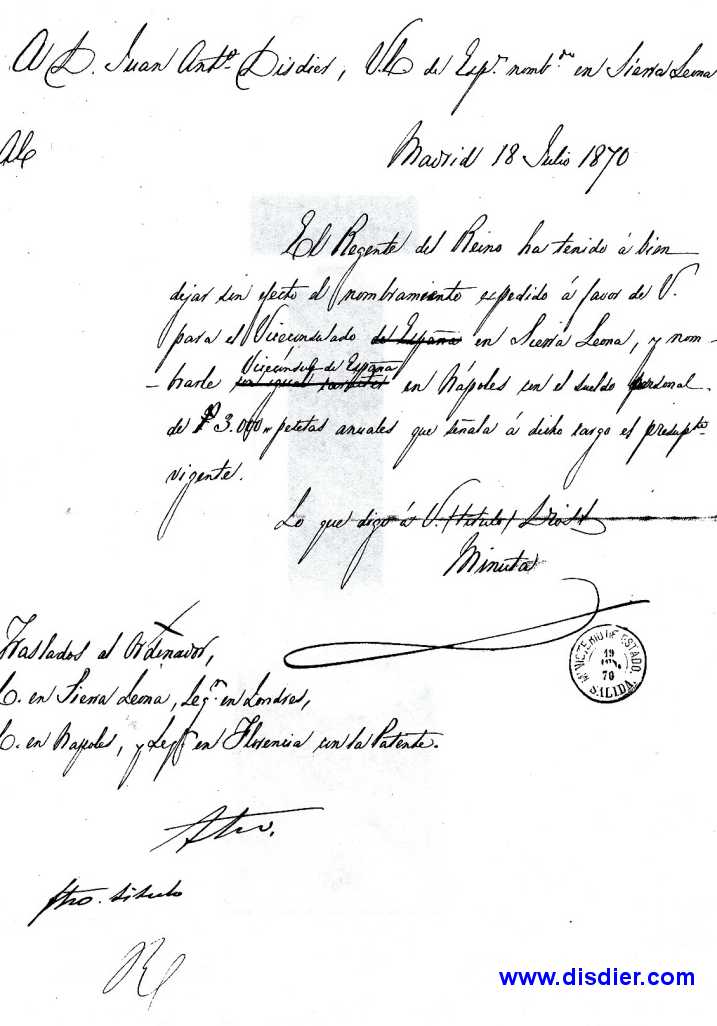 A D. Juan Antº Disdier, V.C. de Esp. nomb.do en Sierra Leona
Madrid 18 Julio 1870
El Regente del Reino ha tenido á bien
dejar sin efecto el nombramiento expedido á favor de V.
para el Viceconsulado de España en Sierra Leona, y nom-
Vicecónsul de España
- brarle con igual caracter en Nápoles con el sueldo personal
de 3.000 pesetas anuales que señala á dicho cargo el presupto
vigente.
Lo que digo á V. (titulo) Dios &
Minuta
Traslados al Ordenador,
C. en Sierra Leona, Leg.on en Londres,
C. en Napoles, y Leg.on en Florencia con la Patente.
MINISTERIO DE ESTADO.
19
70
SALIDA.
fho. titulo
www.disdier.com